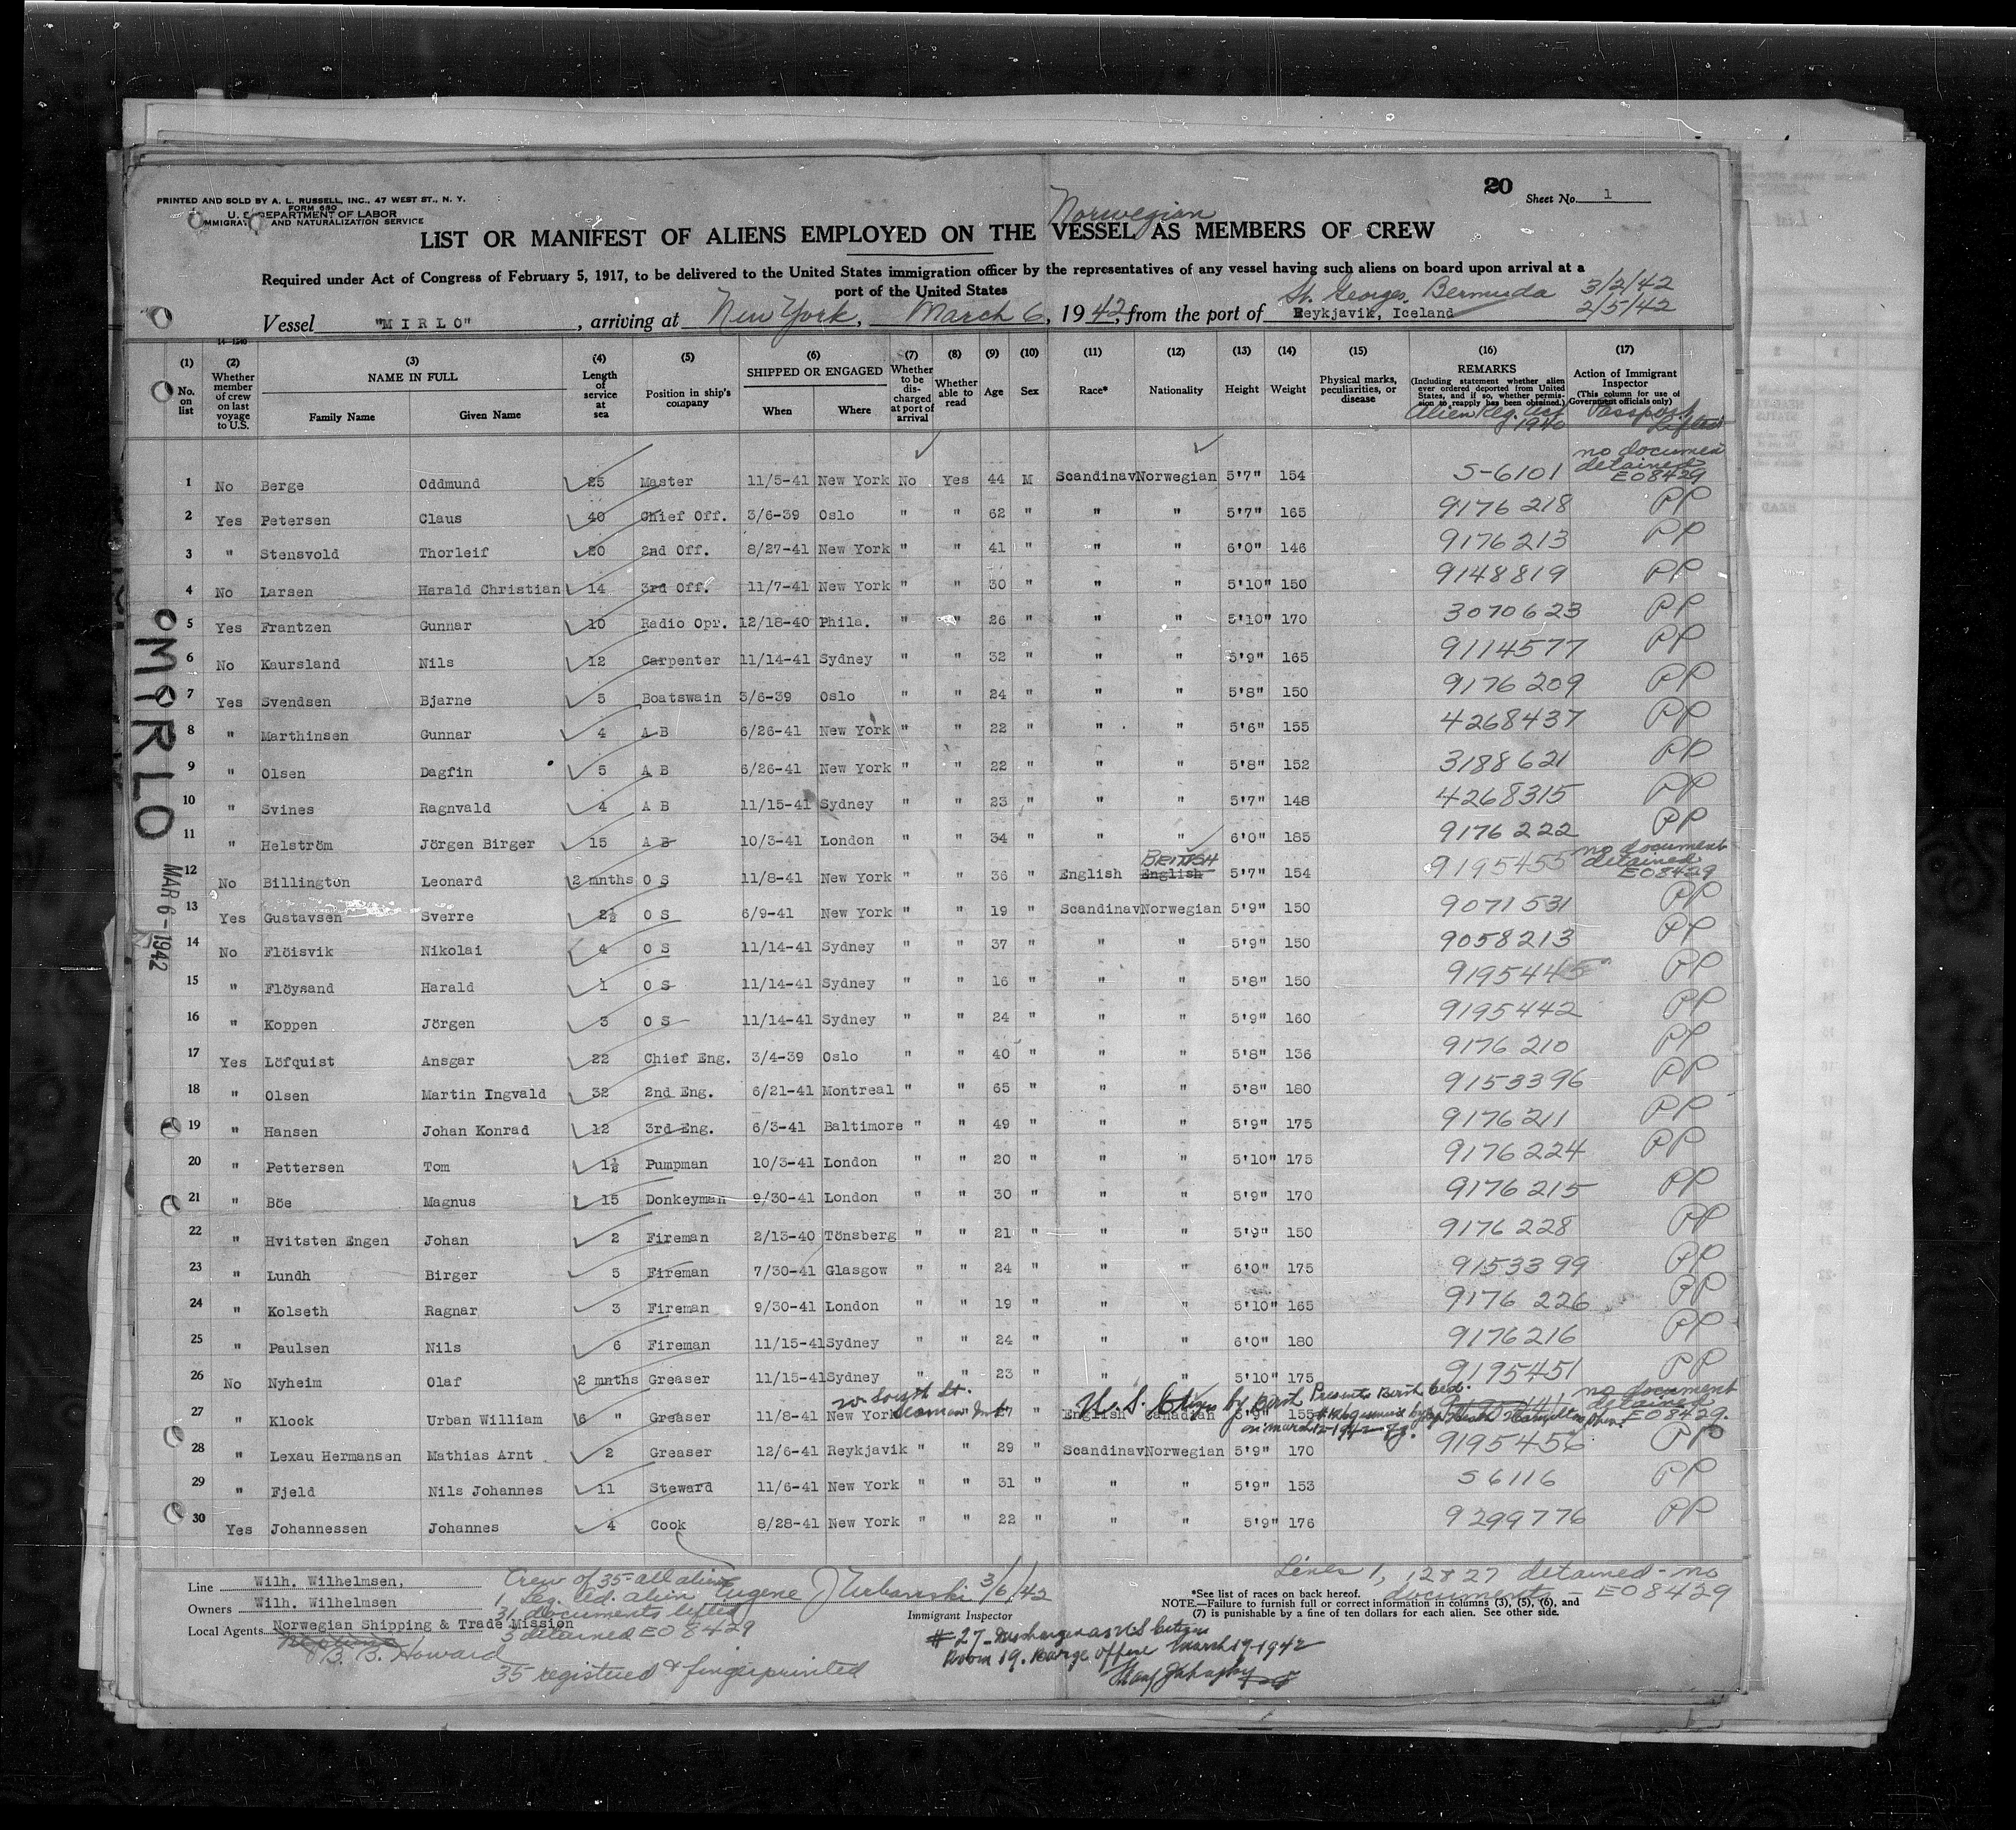 20
Sheet No. 1
PRINTED AND SOLD BY A. L. RUSSELL, INC., 47 WEST ST., N. Y.
FORM 680
U. S. DEPARTMENT OF LABOR
IMMIGRATION AND NATURALIZATION SERVICE
Norwegian
LIST OR MANIFEST OF ALIENS EMPLOYED ON THE VESSEL AS MEMBERS OF CREW
Required under Act of Congress of February 5, 1917, to be delivered to the United States immigration officer by the representatives of any vessel having such aliens on board upon arrival at a
port of the United States
St. Georges, Bermuda 3/2/42
Vessel "MIRLO", arriving at New York, March 6, 1942, from the port of Reykjavik, Iceland 2/5/42
14-1240
(1) No. on list
(2) Whether member of crew on last voyage to U.S.
(3) NAME IN FULL Family Name Given Name
(4) Length of service at sea
(5) Position in ship's company
(6) SHIPPED OR ENGAGED When Where
(7) Whether to be discharged at port of arrival
(8) Whether able to read
(9) Age
(10) Sex
(11) Race*
(12) Nationality
(13) Height
(14) Weight
(15) Physical marks, peculiarities, or disease
(16) REMARKS (Including statement whether alien ever ordered deported from United States, and if so, whether permission to reapply has been obtained.) Alien Reg. Act 1940
(17) Action of Immigrant Inspector (This column for use of Government officials only) Passport Lifted
1 No Berge Oddmund 25 Master 11/5-41 New York No Yes 44 M Scandinav Norwegian 5'7" 154 S-6101 no documen detained EO8429
2 Yes Petersen Claus 40 Chief Off. 3/6-39 Oslo " " 62 " " " 5'7" 165 9176218 PP
3 " Stensvold Thorleif 20 2nd Off. 8/27-41 New York " " 41 " " " 6'0" 146 9176213 PP
4 No Larsen Harald Christian 14 3rd Off. 11/7-41 New York " " 30 " " " 5'10" 150 9148819 PP
5 Yes Frantzen Gunnar 10 Radio Opr. 12/18-40 Phila. " " 26 " " " 5'10" 170 3070623 PP
6 No Kaursland Nils 12 Carpenter 11/14-41 Sydney " " 32 " " " 5'9" 165 9114577 PP
7 Yes Svendsen Bjarne 5 Boatswain 3/6-39 Oslo " " 24 " " " 5'8" 150 9176209 PP
8 " Marthinsen Gunnar 4 A B 6/26-41 New York " " 22 " " " 5'6" 155 4268437 PP
9 " Olsen Dagfin 5 A B 6/26-41 New York " " 22 " " " 5'8" 152 3188621 PP
10 " Svines Ragnvald 4 A B 11/15-41 Sydney " " 23 " " " 5'7" 148 4268315 PP
11 " Helström Jörgen Birger 15 A B 10/3-41 London " " 34 " " 6'0" 185 9176222 PP
12 No Billington Leonard 2 mnths O S 11/8-41 New York " " 36 " English BRITISH English 5'7" 154 9195455 no document detained EO8429
13 Yes Gustavsen Sverre 2½ O S 6/9-41 New York " " 19 " Scandinav Norwegian 5'9" 150 9071531 PP
14 No Flöisvik Nikolai 4 O S 11/14-41 Sydney " " 37 " " " 5'9" 150 9058213 PP
15 " Flöysand Harald 1 O S 11/14-41 Sydney " " 16 " " " 5'8" 150 9195445 PP
16 " Koppen Jörgen 3 O S 11/14-41 Sydney " " 24 " " " 5'9" 160 9195442 PP
17 Yes Löfquist Ansgar 22 Chief Eng. 3/4-39 Oslo " " 40 " " " 5'8" 136 9176210 PP
18 " Olsen Martin Ingvald 32 2nd Eng. 6/21-41 Montreal " " 65 " " " 5'8" 180 9153396 PP
19 " Hansen Johan Konrad 12 3rd Eng. 6/3-41 Baltimore " " 49 " " " 5'9" 175 9176211 PP
20 " Pettersen Tom 1½ Pumpman 10/3-41 London " " 20 " " " 5'10" 175 9176224 PP
21 " Böe Magnus 15 Donkeyman 9/30-41 London " " 30 " " " 5'9" 170 9176215 PP
22 " Hvitsten Engen Johan 2 Fireman 2/13-40 Tönsberg " " 21 " " " 5'9" 150 9176228 PP
23 " Lundh Birger 5 Fireman 7/30-41 Glasgow " " 24 " " " 6'0" 175 9153399 PP
24 " Kolseth Ragnar 3 Fireman 9/30-41 London " " 19 " " " 5'10" 165 9176226 PP
25 " Paulsen Nils 6 Fireman 11/15-41 Sydney " " 24 " " " 6'0" 180 9176216 PP
26 No Nyheim Olaf 2 mnths Greaser 11/15-41 Sydney " " 23 " " " 5'10" 175 9195451 PP
27 " Klock Urban William 6 " Greaser 11/8-41 New York English Canadian 5'9" 155 U.S. Citizen by Presents Birth no document detained EO8429.
28 " Lexau Hermansen Mathias Arnt 2 Greaser 12/6-41 Reykjavik " " 29 " Scandinav Norwegian 5'9" 170 9195456 PP
29 " Fjeld Nils Johannes 11 Steward 11/6-41 New York " " 31 " " " 5'9" 153 S6116 PP
30 Yes Johannessen Johannes 4 Cook 8/28-41 New York " " 22 " " " 5'9" 176 9299776 PP
MIRLO
MAR 6-1942
Lines 1, 12 & 27 detained - no
documents - EO8429
Line Wilh. Wilhelmsen,
Owners Wilh. Wilhelmsen
Local Agents Norwegian Shipping & Trade Mission
B. B. Howard
Crew of 35 - all aliens
1 alien
31 documents lifted
3 detained EO8429
35 registered & fingerprinted
Eugene J Urbanski 3/6/42
Immigrant Inspector
*See list of races on back hereof.
NOTE.—Failure to furnish full or correct information in columns (3), (5), (6), and
(7) is punishable by a fine of ten dollars for each alien. See other side.
#27 - Discharged as US Citizen
Room 19. Barge Office March 17-1942